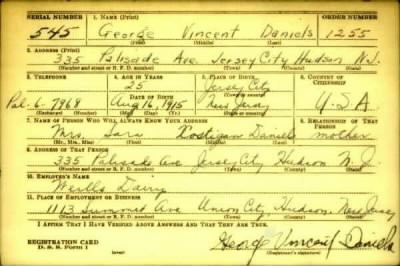 SERIAL NUMBER 1. NAME (Print) ORDER NUMBER
545 George Vincent Daniels 1255
(First) (Middle) (Last)
2. ADDRESS (Print)
335 Palisade Ave. Jersey City Hudson N.J.
(Number and street or R. F. D. number) (Town) (County) (State)
3. TELEPHONE 4. AGE IN YEARS 5. PLACE OF BIRTH 6. COUNTRY OF CITIZENSHIP
25 Jersey City
DATE OF BIRTH (Town or county)
Pal. 6-7968 Aug 16, 1915 New Jersey U.S.A
(Exchange) (Number) (Mo.) (Day) (Yr.) (State or country)
7. NAME OF PERSON WHO WILL ALWAYS KNOW YOUR ADDRESS 8. RELATIONSHIP OF THAT PERSON
Mrs. Sara Daniels mother
(Mr., Mrs., Miss) (First) (Middle) (Last)
9. ADDRESS OF THAT PERSON
335 Palisade Ave Jersey City Hudson N.J.
(Number and street or R. F. D. number) (Town) (County) (State)
10. EMPLOYER'S NAME
Dairy
11. PLACE OF EMPLOYMENT OR BUSINESS
1113 Summit Ave Union City, Hudson, New Jersey
(Number and street or R. F. D. number) (Town) (County) (State)
I AFFIRM THAT I HAVE VERIFIED ABOVE ANSWERS AND THAT THEY ARE TRUE.
REGISTRATION CARD
D. S. S. Form 1 (over) George Vincent Daniels
(Registrant's signature)